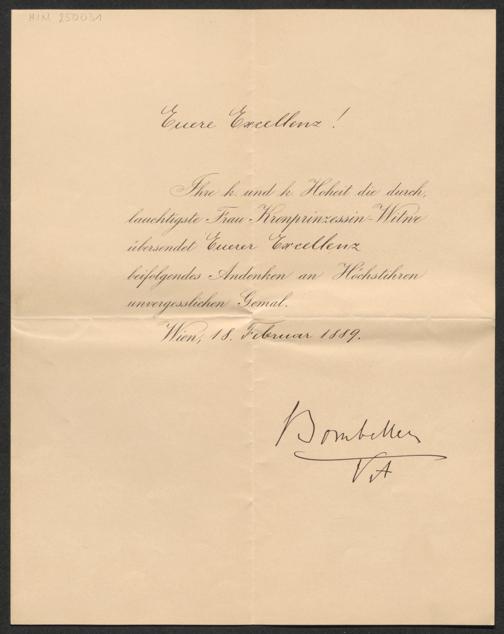 HIN 250031
Euere Excellenz!
Ihre k. und k. Hoheit die durch,
lauchtigste Frau Kronprinzessin-Witwe
übersendet Euerer Excellenz
beifolgendes Andenken an Höchstihren
unvergesslichen Gemal.
Wien, 18. Februar 1889.
Bombelles
VA